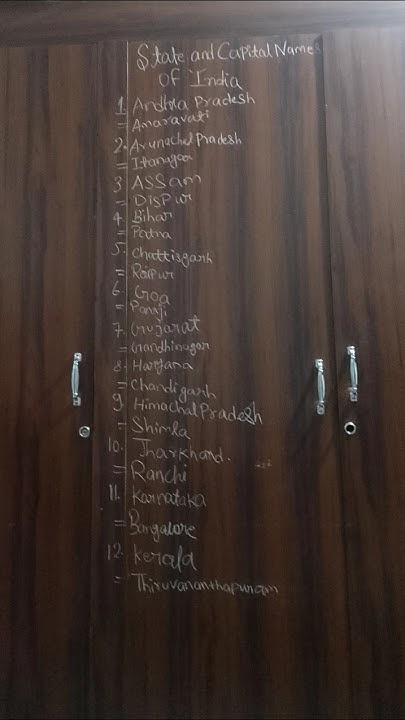 State and Capital Names
of India
1. Andhra Pradesh
= Amaravati
2. Arunachal Pradesh
= Itanagar
3 ASSam
= DisPur
4. Bihar
= Patna
5. Chattisgarh
= Raipur
6. Goa
= Panaji
7. Gujarat
= Gandhinagar
8. Haryana
= Chandigarh
9. Himachal Pradesh
= Shimla
10. Jharkhand.
= Ranchi
11. Karnataka
= Bangalore
12. Kerala
= Thiruvananthapuram